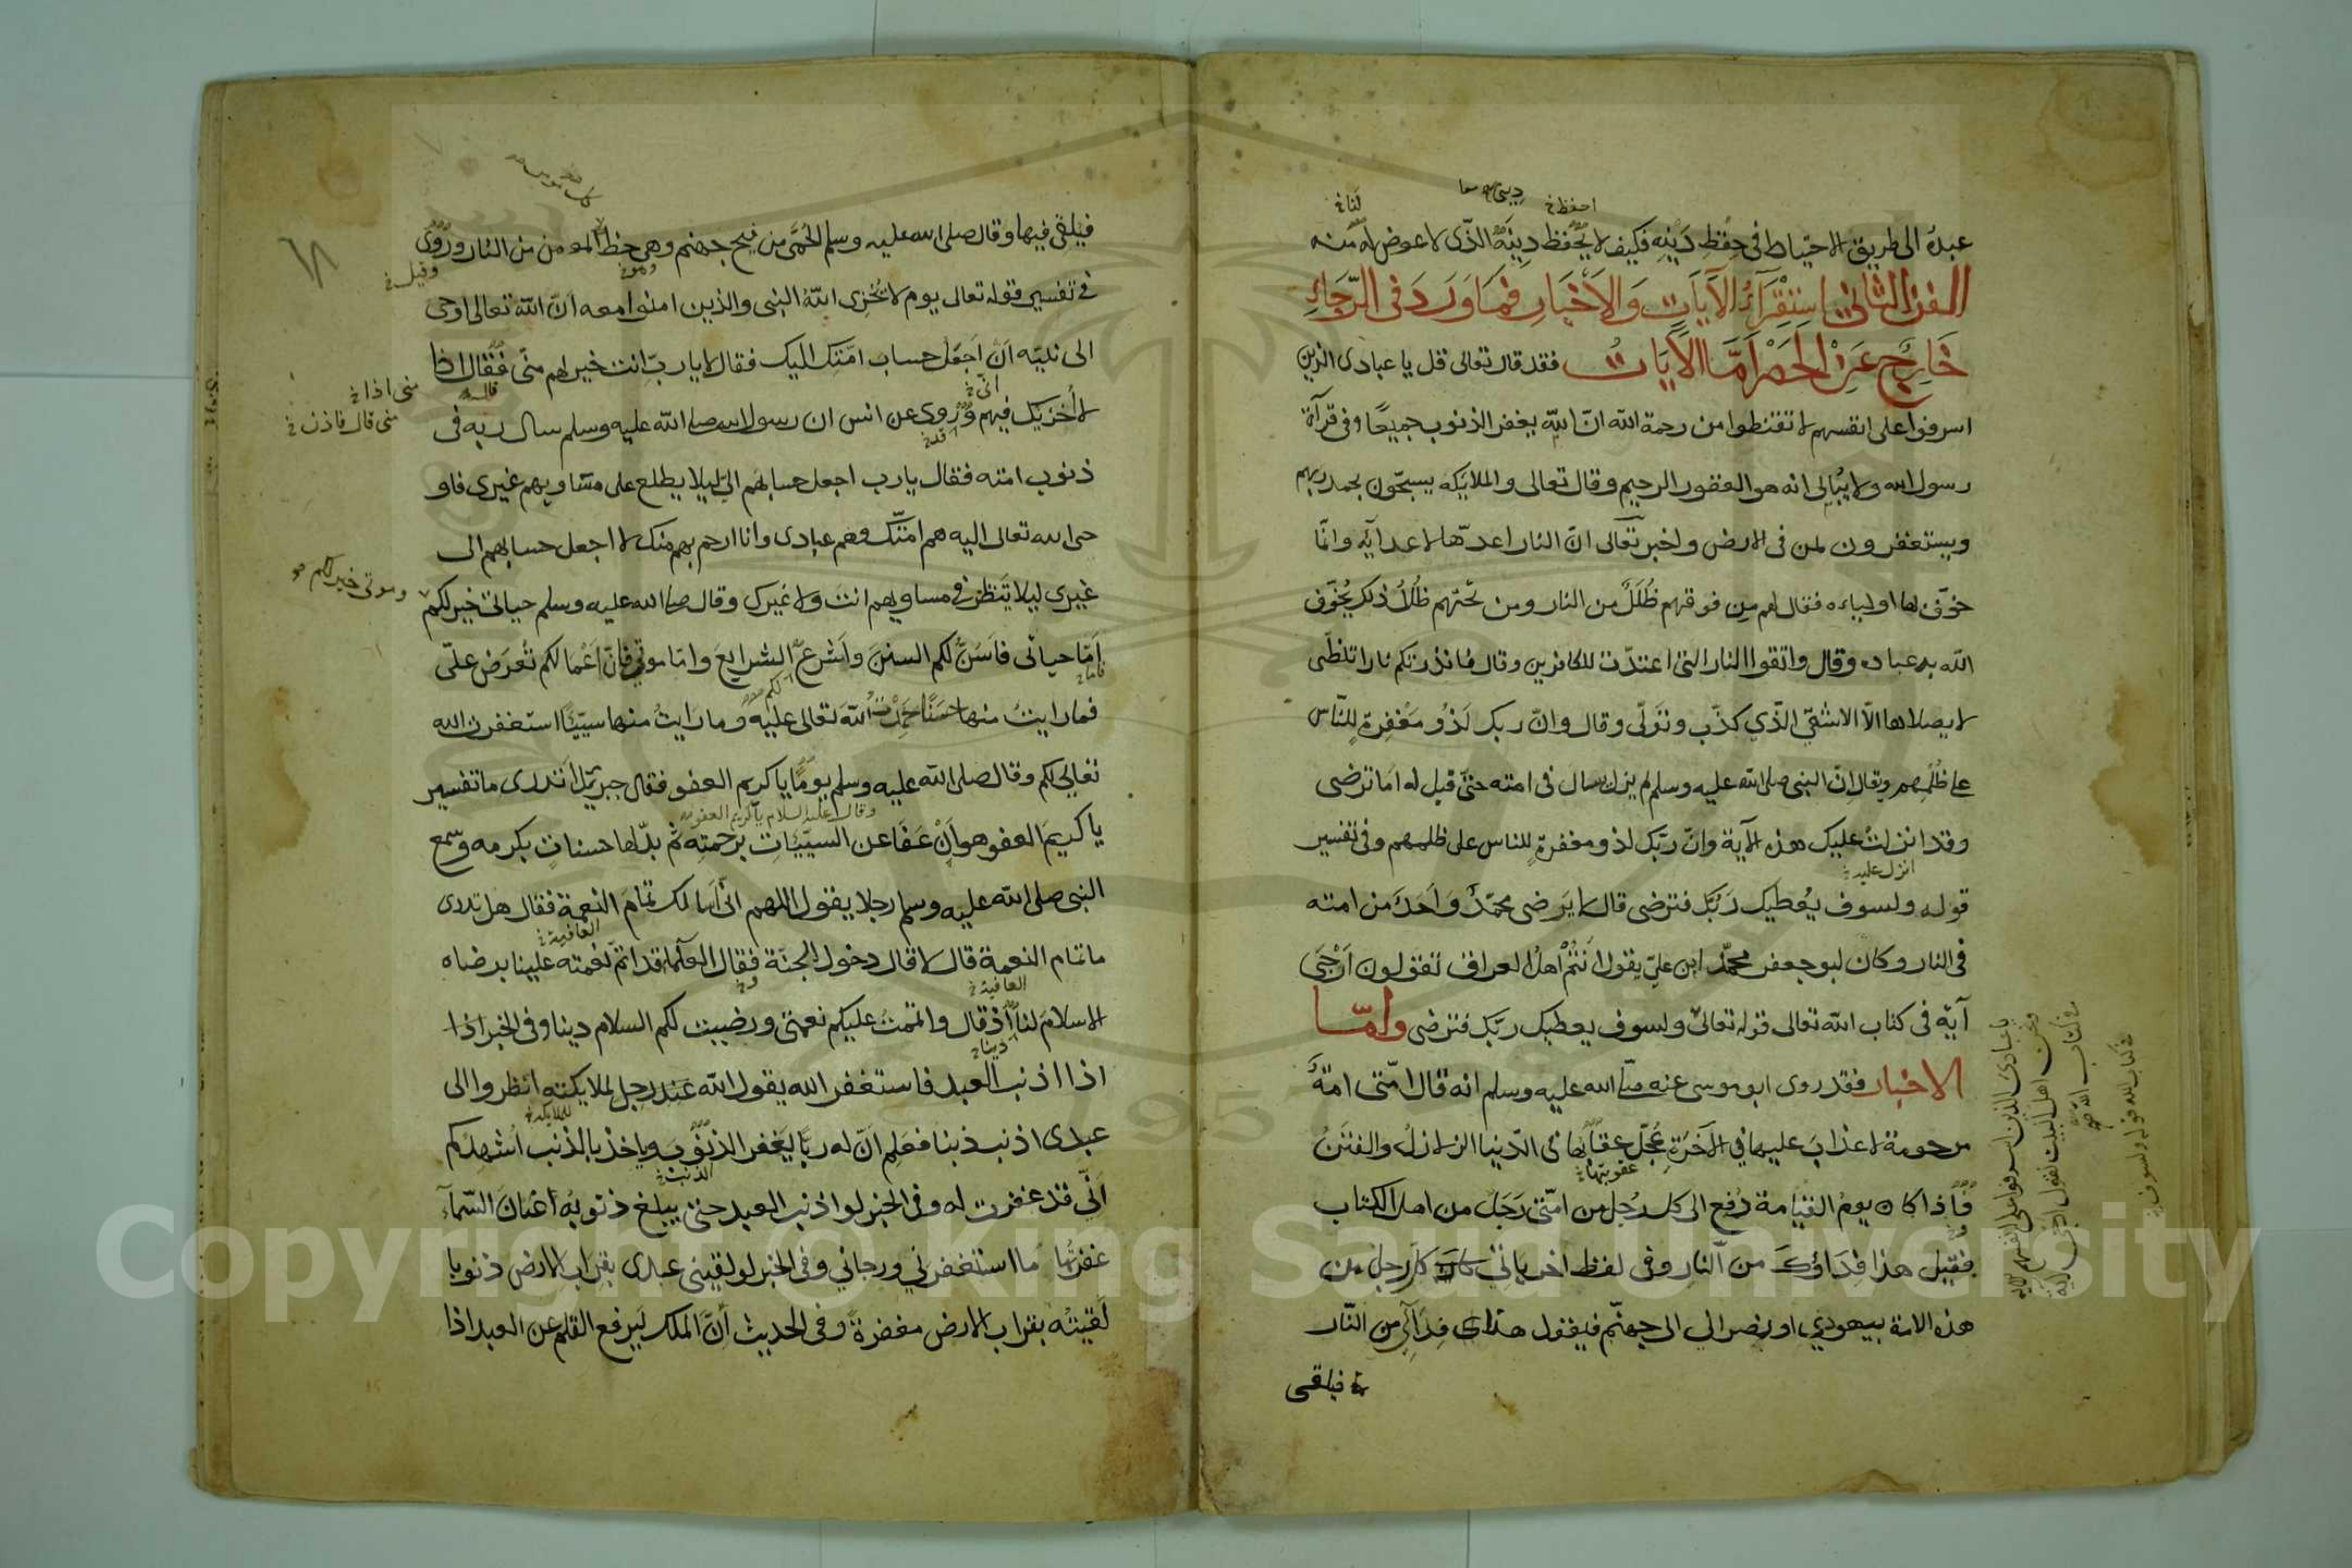 لنا خ
ديني صح معا
احفظ خ
عبده الى طريق الاحتياط في حفظ دينه فكيف لا يحفظ دينه الذي لا عوض له منه
الفن الثاني استقراء الآيات والاخبار فما ورد في الرجاء
خارج عن الحصر اما الآيات فقد قال تعالى قل يا عبادى الذين
اسرفوا على انفسهم لا تقنطوا من رحمة الله ان الله يغفر الذنوب جميعا وفي قرآة
رسول الله ولا يبالى انه هو الغفور الرحيم وقال تعالى والملايكه يسبحون بحمد ربهم
ويستغفرون لمن في الارض واخبر تعالى ان النار اعدها لاعدآيه وانما
خوف بها اولياءه فقال لهم من فوقهم ظلل من النار ومن تحتهم ظلل ذلك يخوف
الله به عباده وقال واتقوا النار التى اعتدت للكافرين وقال فانذرتكم نارا تلظى
لا يصلاها الا الاشقى الذي كذب وتولى وقال وان ربك لذو مغفرة للناس
على ظلمهم ويقال ان النبي صلى الله عليه وسلم لم يزل يسال في امته حتى قيل له اما ترضى
وقد انزلت عليك هذه الآية وان ربك لذو مغفرة للناس على ظلمهم وفي تفسير
انزل عليه خ
قوله ولسوف يعطيك ربك فترضى قال لا يرضى محمد واحد من امته
في النار وكان ابو جعفر محمد ابن علي يقول انتم اهل العراق تقولون ارجى
آية في كتاب الله تعالى قوله تعالى ولسوف يعطيك ربك فترضى واما
الاخبار فقد روى ابو موسى عنه صلى الله عليه وسلم انه قال امتى امة
مرحومة لا عذاب عليها في الآخرة عجل عقابها في الدنيا الزلازل والفتن
عقوبتها خ
فاذا كان يوم القيامة دفع الى كل رجل من امتى رجل من اهل الكتاب
فقيل هذا فداؤك من النار وفي لفظ اخر ياتي كل رجل من
هذه الامة بيهودي او نصرانى الى جهنم فيقول هذا فدآئى من النار
فيلقى
يا عبادى الذين اسرفوا على انفسهم الآية
ونحن اهل البيت نقول ارجى آية
في كتاب الله صح
في كتاب الله قوله ولسوف خ
٦٨
فيلقى فيها وقال صلى الله عليه وسلم الحمى من فيح جهنم وهى حظ المومن من النار وروى
وهو خ
وقيل خ
في تفسير قوله تعالى يوم لا يخزى الله النبي والذين امنوا معه ان الله تعالى اوحى
الى نبيه ان اجعل حساب امتك اليك فقال لا يارب انت خير لهم منى فقال اذا
منى اذا خ
انى خ
لا اخزيك فيهم وروى عن انس ان رسول الله صلى الله عليه وسلم سال ربه في
منى قال فاذن خ
ذنوب امته فقال يارب اجعل حسابهم الي ليلا يطلع على مساويهم غيرى فاو
حى الله تعالى اليه هم امتك وهم عبادى وانا ارحم بهم منك لا اجعل حسابهم الى
غيرى ليلا ينظر في مساويهم انت ولا غيرك وقال صلى الله عليه وسلم حياتى خير لكم
وموتى خير لكم صح
اما حياتى فاسن لكم السنن واشرع الشرايع واما موتي فان اعمالكم تعرض على
فاما خ
لكم
فما رايت منها حسنا حمدت الله تعالى عليه وما رايت منها سيئا استغفرت الله
تعالى لكم وقال صلى الله عليه وسلم يوما يا كريم العفو فقال جبرئيل اتدرى ما تفسير
وقال عليه السلام يا كريم العفو
يا كريم العفو هو ان عفا عن السيئات برحمته ثم بدلها حسنات بكرمه وسمع
النبى صلى الله عليه وسلم رجلا يقول اللهم انى اسالك تمام النعمة فقال هل تدرى
العافية خ
ما تمام النعمة قال لا قال دخول الجنة فقال العلماء قد اتم نعمته علينا برضاه
العافية خ
الاسلام لنا اذ قال واتممت عليكم نعمتى ورضيت لكم السلام دينا وفى الخبر اذا
دينا خ
اذا اذنب العبد فاستغفر الله يقول الله عند رجل لملايكته انظروا الى
للملايكه خ
عبدى اذنب ذنبا فعلم ان له ربا يغفر الذنوب وياخذ بالذنب اشهدكم
الذنب خ
انى قد غفرت له وفي الخبر لو اذنب العبد حتى يبلغ ذنوبه اعنان السمآء
غفرتها ما استغفرني ورجاني وفى الخبر لو لقينى عبدى بقراب الارض ذنوبا
لقيته بقراب الارض مغفرة وفي الحديث ان الملك ليرفع القلم عن العبد اذا
Copyright © King Saud University